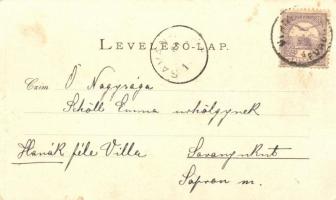 LEVELEZŐ-LAP.
Czim Ő Nagysága
Schöll Emma urhölgynek
Hanák féle Villa
Savanyukut
Sopron m.